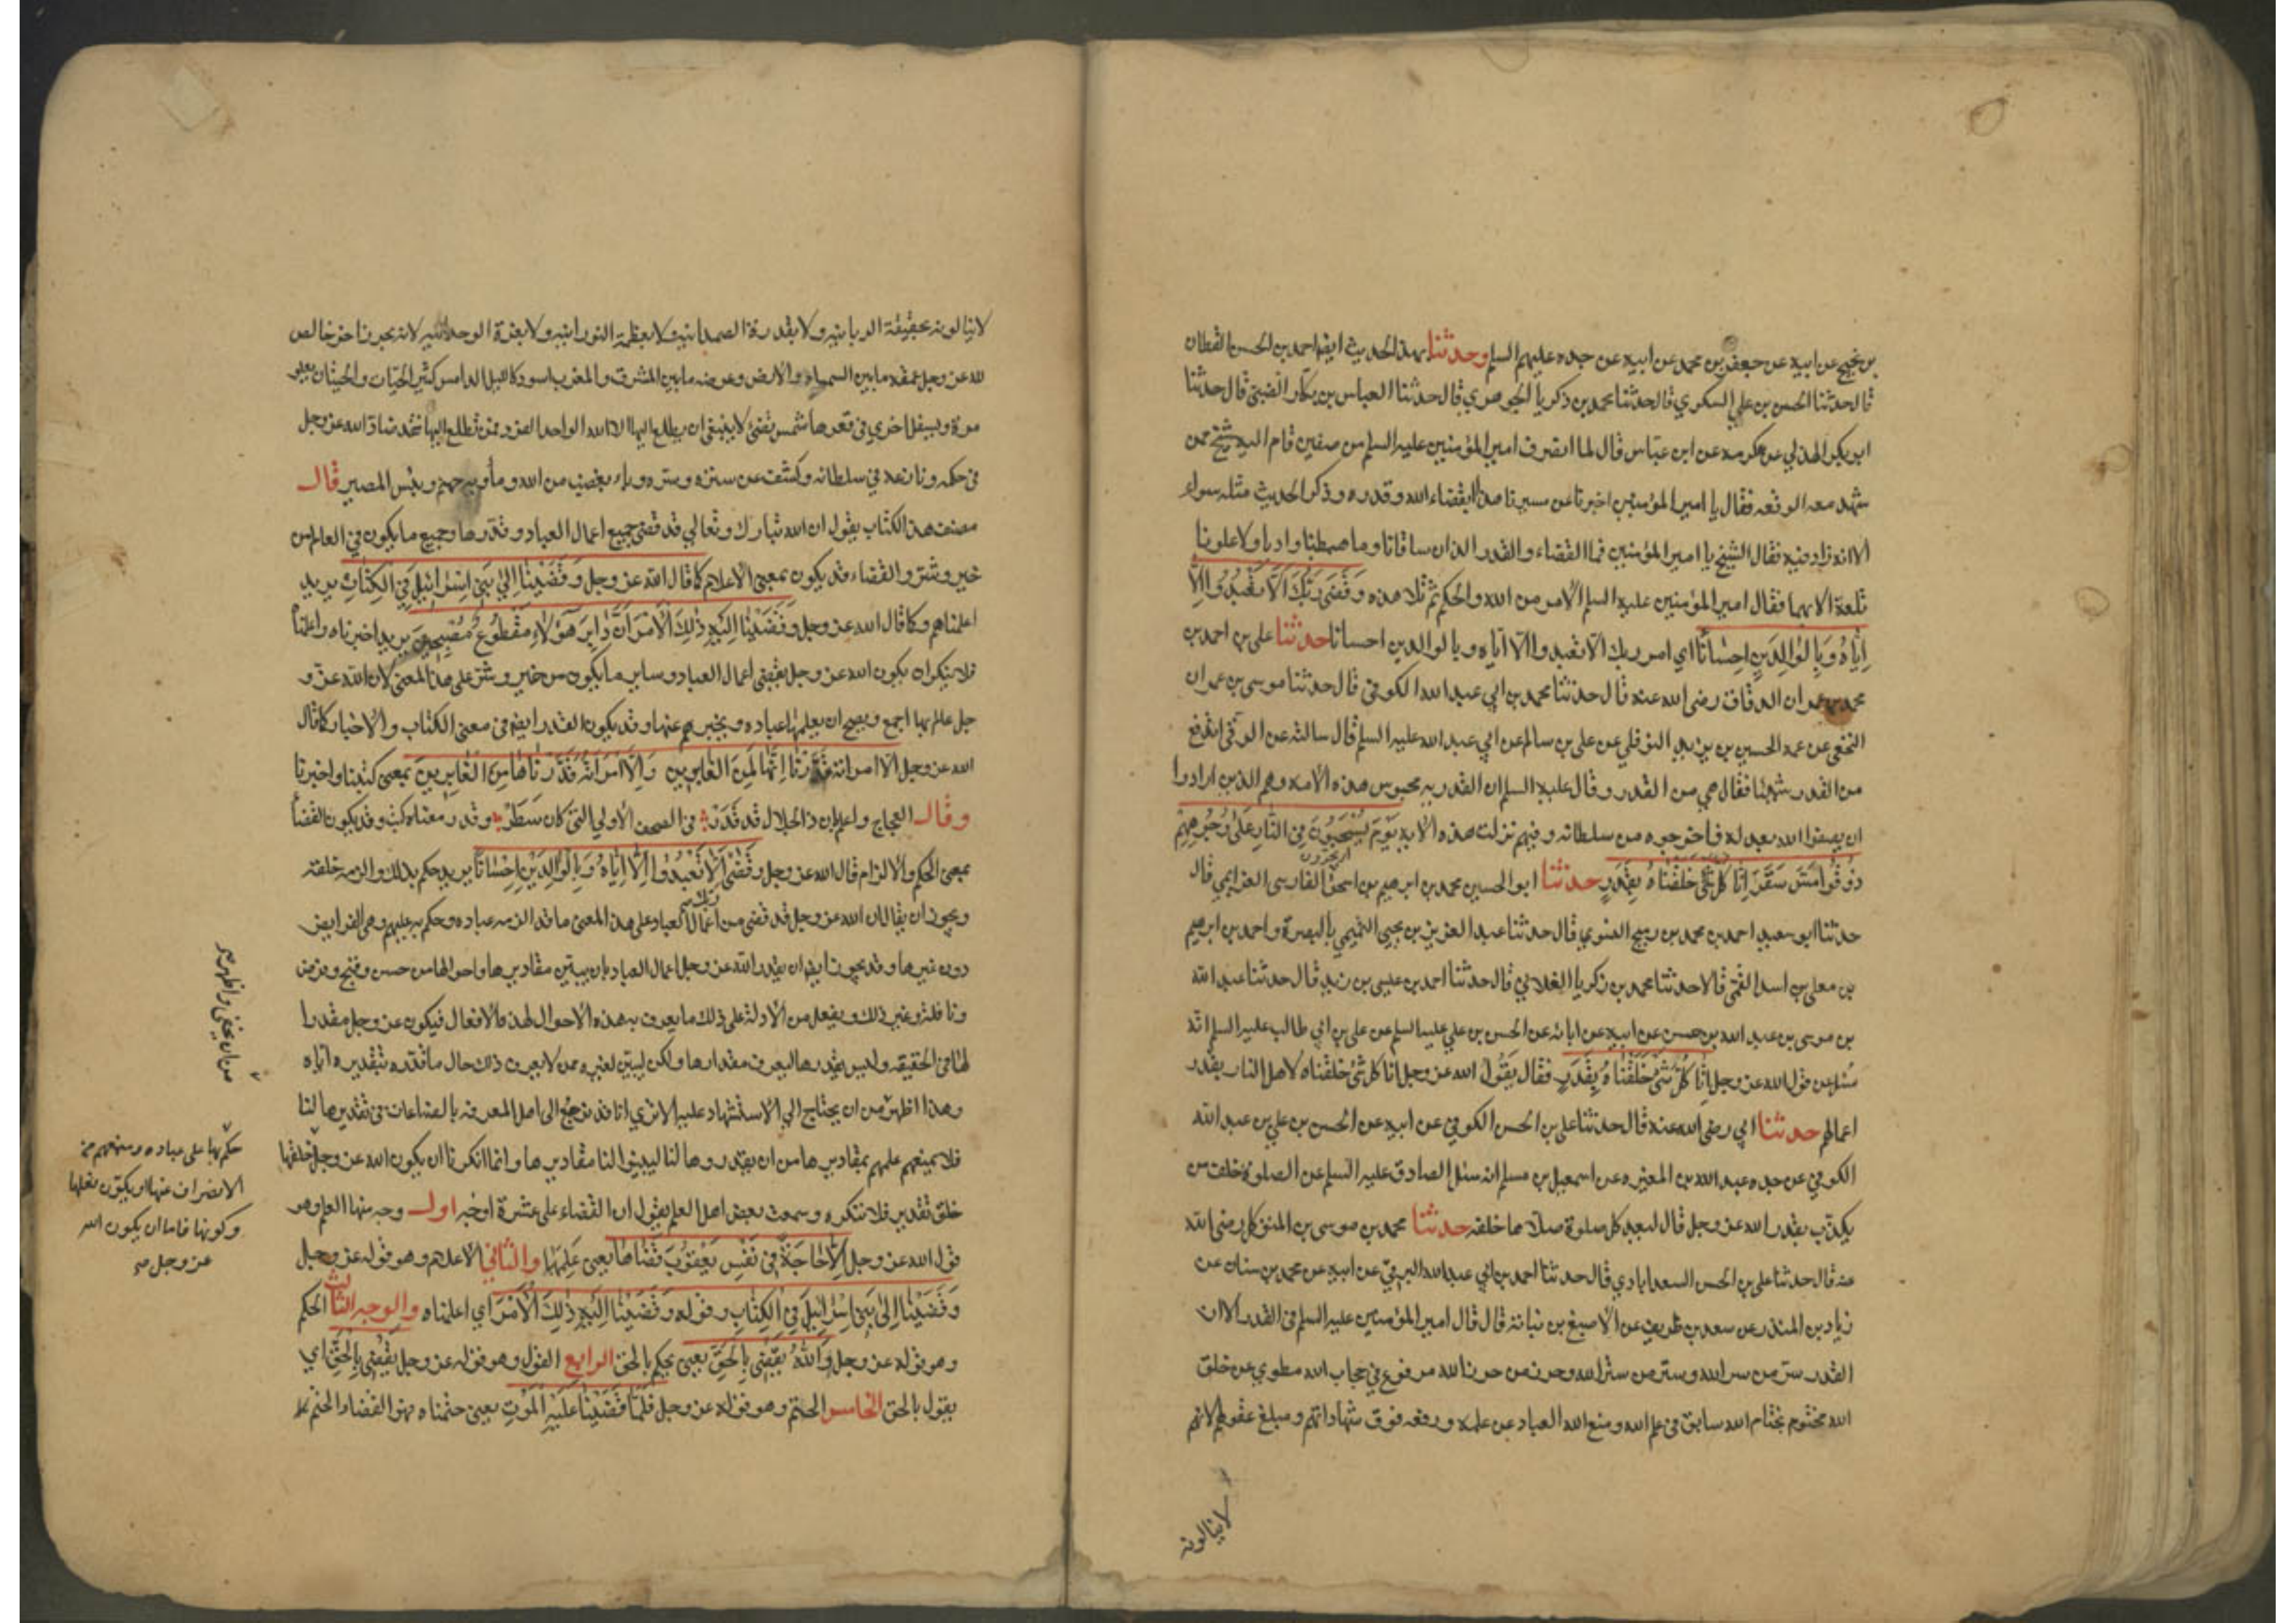 بن نجيح عن ابيه عن جعفر بن محمد عن ابيه عن جده عليهم السلم وحدثنا بهذا الحديث ايضا احمد بن الحسن القطان
قال حدثنا الحسن بن علي السكري قال حدثنا محمد بن زكريا الجوهري قال حدثنا العباس بن بكار الضبي قال حدثنا
ابو بكر الهذلي عن عكرمه عن ابن عباس قال لما انصرف امير المؤمنين عليه السلم من صفين قام اليه شيخ ممن
شهد معه الوقعه فقال يا امير المؤمنين اخبرنا عن مسيرنا هذا ابقضاء الله وقدره وذكر الحديث مثله سواء
الا انه زاد فيه فقال الشيخ يا امير المؤمنين فما القضاء والقدر الذان ساقانا وما هبطنا واديا ولا علونا
تلعة الا بهما فقال امير المؤمنين عليه السلم الامر من الله والحكم ثم تلا هذه وَقَضَى رَبُّكَ اَلَّا تَعْبُدُوا اِلَّا
اِيَّاهُ وَبِالوَالِدَينِ اِحْسَانًا اي امر ربك الا تعبدوا الا اياه وبالوالدين احسانا حدثنا علي بن احمد بن
محمد بن عمران الدقاق رضي الله عنه قال حدثنا محمد بن ابي عبد الله الكوفي قال حدثنا موسى بن عمران
النخعي عن عمه الحسين بن يزيد النوفلي عن علي بن سالم عن ابي عبد الله عليه السلم قال سالته عن الرقى اتدفع
من القدر شيئا فقال هي من القدر وقال عليه السلم ان القدريه مجوس هذه الامه وهم الذين ارادوا
ان يصفوا الله بعدله فاخرجوه من سلطانه وفيهم نزلت هذه الايه يَوْمَ يُسْحَبُونَ فِي النَّارِ عَلَى وُجُوهِهِمْ
ذُوقُوا مَسَّ سَقَرَ اِنَّا كُلَّ شَيْءٍ خَلَقْنَاهُ بِقَدَرٍ حدثنا ابو الحسين محمد بن ابرهيم بن اسحق الفارسي العزايمي قال
حدثنا ابو سعيد احمد بن محمد بن رميح النسوي قال حدثنا عبد العزيز بن يحيى التميمي بالبصرة واحمد بن ابرهيم
بن معلى بن اسد القمي قالا حدثنا محمد بن زكريا الغلابي قال حدثنا احمد بن عيسى بن زيد قال حدثنا عبد الله
بن موسى بن عبد الله بن حسن عن ابيه عن ابائه عن الحسن بن علي عليه السلم عن علي بن ابي طالب عليه السلم انه
سئل عن قول الله عز وجل اِنَّا كُلَّ شَيْءٍ خَلَقْنَاهُ بِقَدَرٍ فقال يقول الله عز وجل انا كل شئ خلقناه لاهل النار بقدر
اعمالهم حدثنا ابي رضي الله عنه قال حدثنا علي بن الحسن الكوفي عن ابيه عن الحسن بن علي بن عبد الله
الكوفي عن جده عبد الله بن المغيره عن اسمعيل بن مسلم انه سئل الصادق عليه السلم عن الصلوة خلف من
يكذب بقدر الله عز وجل قال ليعد كل صلوة صلاها خلفه حدثنا محمد بن موسى بن المتوكل رضي الله
عنه قال حدثنا علي بن الحسن السعدابادي قال حدثنا احمد بن ابي عبد الله البرقي عن ابيه عن محمد بن سنان عن
زياد بن المنذر عن سعد بن ظريف عن الاصبغ بن نباتة قال قال امير المؤمنين عليه السلم في القدر الا ان
القدر سر من سر الله وستر من ستر الله وحرز من حرز الله مرفوع في حجاب الله مطوي عن خلق
الله مختوم بختام الله سابق في علم الله ومنع الله العباد عن علمه ورفعه فوق شهاداتهم ومبلغ عقولهم لانهم
لاينالونه
لا ينالونه بحقيقة الربانيه ولا بقدرة الصمدانيه ولا بعظمة النورانيه ولا بعزة الوحدانيه لانه بحر زاخر خالص
لله عز وجل عمقه ما بين السماء والارض وعرضه ما بين المشرق والمغرب اسود كالليل الدامس كثير الحيات والحيتان يعلو
مرة ويسفل اخرى في قعرها شمس تضئ لا ينبغي ان يطلع اليها الا الله الواحد الفرد فمن تطلع اليها فقد ضاد الله عز وجل
في حكمه ونازعه في سلطانه وكشف عن ستره وسره وباء بغضب من الله ومأويه جهنم وبئس المصير قال
مصنف هذا الكتاب يقول ان الله تبارك وتعالى قد قضى جميع اعمال العباد وقدرها وجميع ما يكون في العالم من
خير وشر والقضاء قد يكون بمعنى الاعلام كما قال الله عز وجل وَقَضَيْنَا اِلَى بَنِي اِسْرَائِيلَ فِي الكِتَابِ يريد
اعلمناهم وكما قال الله عز وجل وَقَضَيْنَا اِلَيْهِ ذَلِكَ الْاَمْرَ اَنَّ دَابِرَ هَؤُلَاءِ مَقْطُوعٌ مُصْبِحِينَ يريد اخبرناه واعلمناه
فلا ينكر ان يكون الله عز وجل يقضي اعمال العباد وساير ما يكون من خير وشر على هذا المعنى لان الله عز و
جل عالم بها اجمع ويصح ان يعلمها عباده ويخبرهم عنها وقد يكون القدر ايضا في معنى الكتاب والاخبار كما قال
الله عز وجل الا امراته قَدَّرْنَا اِنَّهَا لَمِنَ الغَابِرِينَ وَاِلَّا امْرَاَتَهُ قَدَّرْنَاهَا مِنَ الغَابِرِينَ بمعنى كتبنا واخبرنا
وقال العجاج واعلم بان ذا الجلال قد قَدَر في الصحف الاولى التي كان سَطَر وقدر معناه كتب وقد يكون القضا
بمعنى الحكم والالزام قال الله عز وجل وَقَضَى اَلَّا تَعْبُدُوا اِلَّا اِيَّاهُ وَبِالوَالِدَيْنِ اِحْسَانًا يريد حكم بذلك والزمه خلقه
ويجوز ان يقال ان الله عز وجل قد قضى من اعمال العباد على هذا المعنى ما قد الزمه عباده وحكم به عليهم وهي الفرايض
دون غيرها وقد يجوز ايضا ان يقدر الله عز وجل اعمال العباد بان يبين مقاديرها واحوالها من حسن وقبح وفرض
ونافلة وغير ذلك ويفعل من الادلة على ذلك ما يعرف به هذه الاحوال لهذه الافعال فيكون عز وجل مقدرا
لها في الحقيقه وليس يقدرها ليعرف مقدارها ولكن ليبين لغيره ممن لا يعرف ذلك حال ما قدره بتقديره اياه
وهذا اظهر من ان يحتاج الى الاستشهاد عليه الا ترى انا قد نرجع الى اهل المعرفه بالصناعات في تقديرها لنا
فلا يمنعهم علمهم بمقاديرها من ان يقدروها لنا ليبينوا لنا مقاديرها وانما انكرنا ان يكون الله عز وجل خلقها
خلق تقدير فلا ننكره وسمعت بعض اهل العلم يقول ان القضاء على عشرة اوجه اول وجه منها العلم وهو
قول الله عز وجل اِلَّا حَاجَةً فِي نَفْسِ يَعْقُوبَ قَضَاهَا يعني عَلِمَهَا والثاني الاعلام وهو قوله عز وجل
وَقَضَيْنَا اِلَى بَنِي اِسْرَائِيلَ فِي الكِتَابِ وقوله وَقَضَيْنَا اِلَيْهِ ذَلِكَ الْاَمْرَ اي اعلمناه والوجه الثالث الحكم
وهو قوله عز وجل وَاللهُ يَقْضِي بِالْحَقِّ يعني يحكم بالحق الرابع القول وهو قوله عز وجل يَقْضِي بِالحَقِّ اي
يقول بالحق الخامس الحتم وهو قوله عز وجل فَلَمَّا قَضَيْنَا عَلَيْهِ المَوْتَ يعني حتمناه فهو القضاء الحتم
من ان يخفى واظهر صح
حكم بها على عباده ومنعهم من
الانصراف عنها او يكون فعلها
وكونها فاما ان يكون الله
عز وجل صح